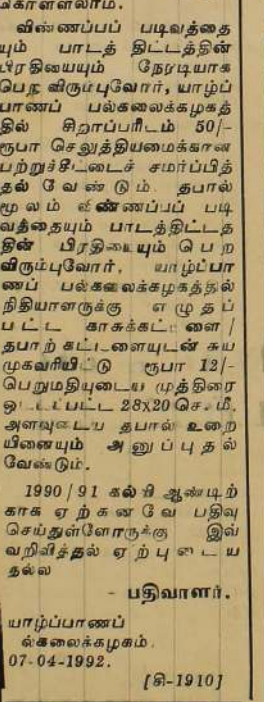 கொள்ளலாம்.
விண்ணப்பப் படிவத்தை
யும் பாடத் திட்டத்தின்
பிரதியையும் நேரடியாக
பெற விரும்புவோர், யாழ்ப்
பாணப் பல்கலைக்கழகத்
தில் சிறாப்பரிடம் 50/-
ரூபா செலுத்தியமைக்கான
பற்றுச்சீட்டைச் சமர்ப்பித்
தல் வேண்டும். தபால்
மூலம் விண்ணப்பப் படி
வத்தையும் பாடத்திட்டத்
தின் பிரதியையும் பெற
விரும்புவோர், யாழ்ப்பா
ணப் பல்கலைக்கழகத்தல்
நிதியாளருக்கு எழுதப்
பட்ட காசுக்கட்டளை /
தபாற் கட்டளையுடன் சுய
முகவரியிட்டு ரூபா 12/-
பெறுமதியுடைய முத்திரை
ஒட்டப்பட்ட 28x20 செ.மீ.
அளவுடைய தபால் உறை
யினையும் அனுப்புதல்
வேண்டும்.
1990/91 கல்வி ஆண்டிற்
காக ஏற்கனவே பதிவு
செய்துள்ளோருக்கு இவ்
வறிவித்தல் ஏற்புடைய
தல்ல
- பதிவாளர்.
யாழ்ப்பாணப்
ல்கலைக்கழகம்.
07-04-1992.
[கி-1910]